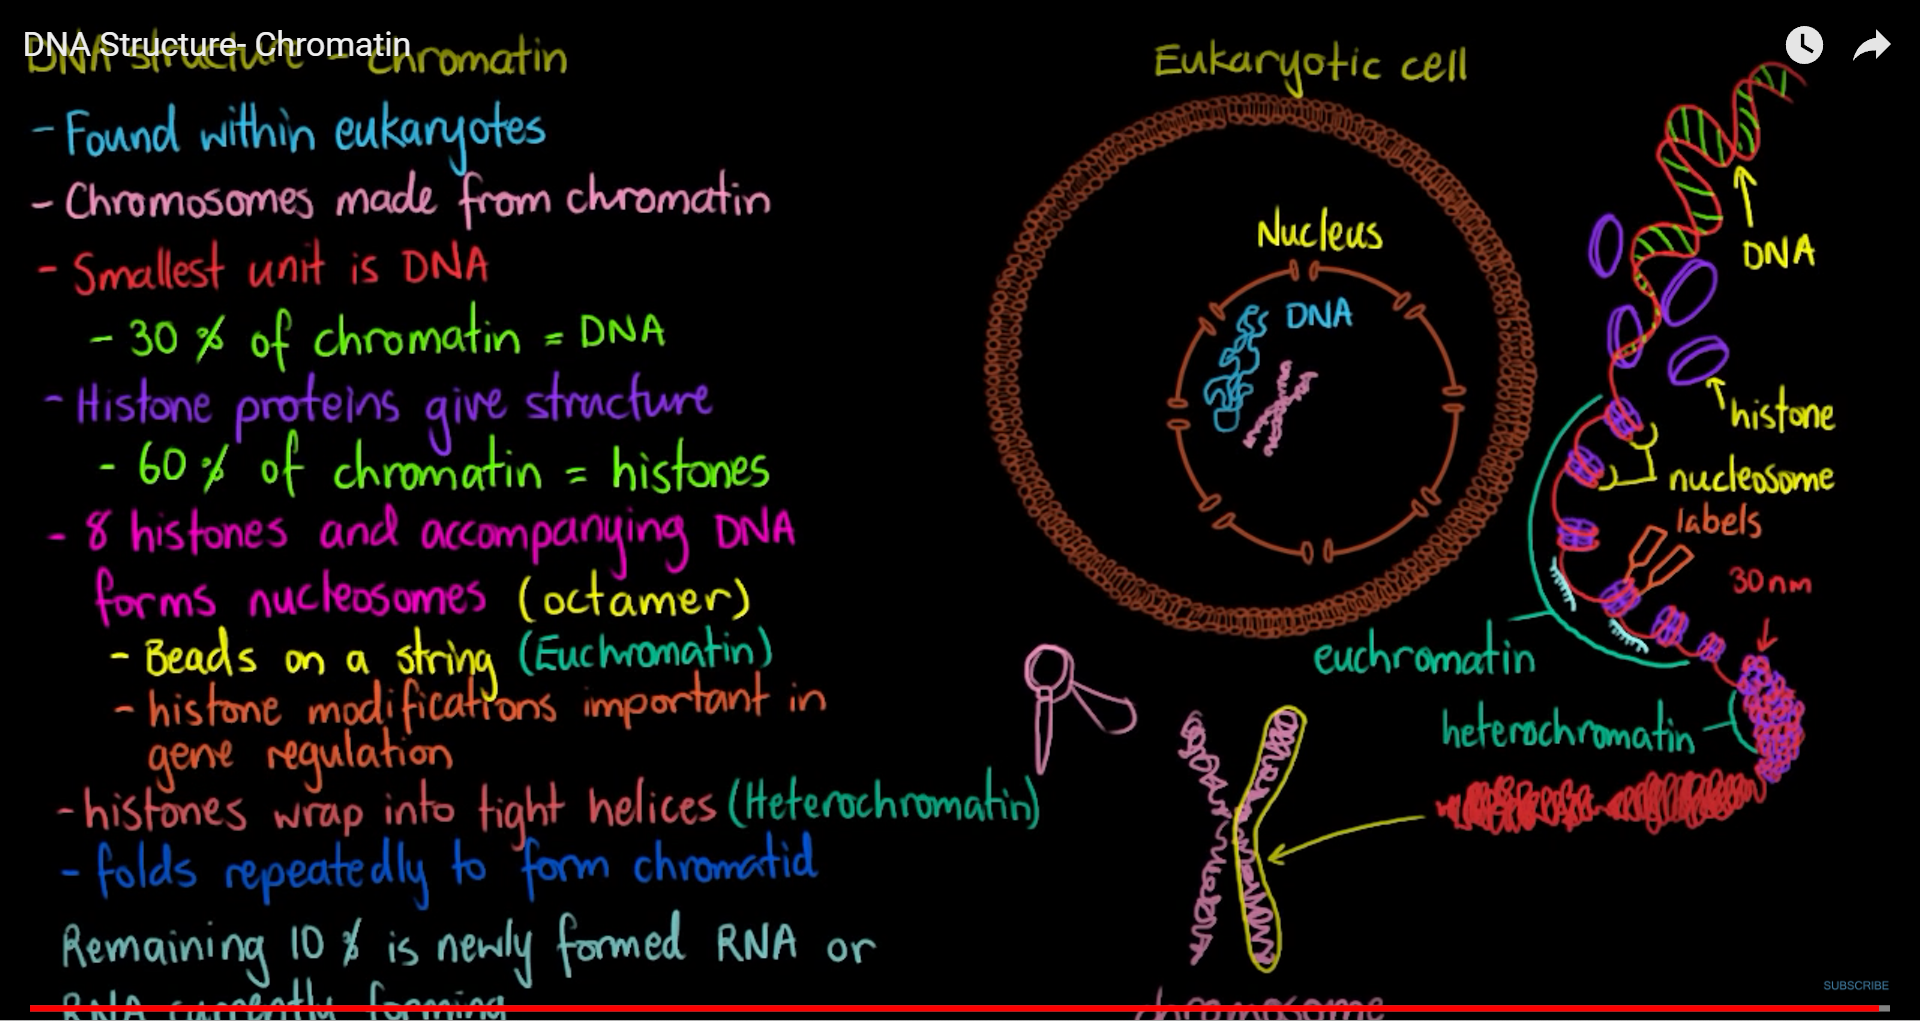 DNA Structure- Chromatin
DNA structure - Chromatin
- Found within eukaryotes
- Chromosomes made from chromatin
- Smallest unit is DNA
- 30 % of chromatin = DNA
- Histone proteins give structure
- 60 % of chromatin = histones
- 8 histones and accompanying DNA
forms nucleosomes (octamer)
- Beads on a string (Euchromatin)
- histone modifications important in
gene regulation
- histones wrap into tight helices (Heterochromatin)
- folds repeatedly to form chromatid
Remaining 10 % is newly formed RNA or
RNA currently forming
Eukaryotic cell
Nucleus
DNA
DNA
histone
nucleosome
labels
30nm
euchromatin
heterochromatin
chromosome
SUBSCRIBE